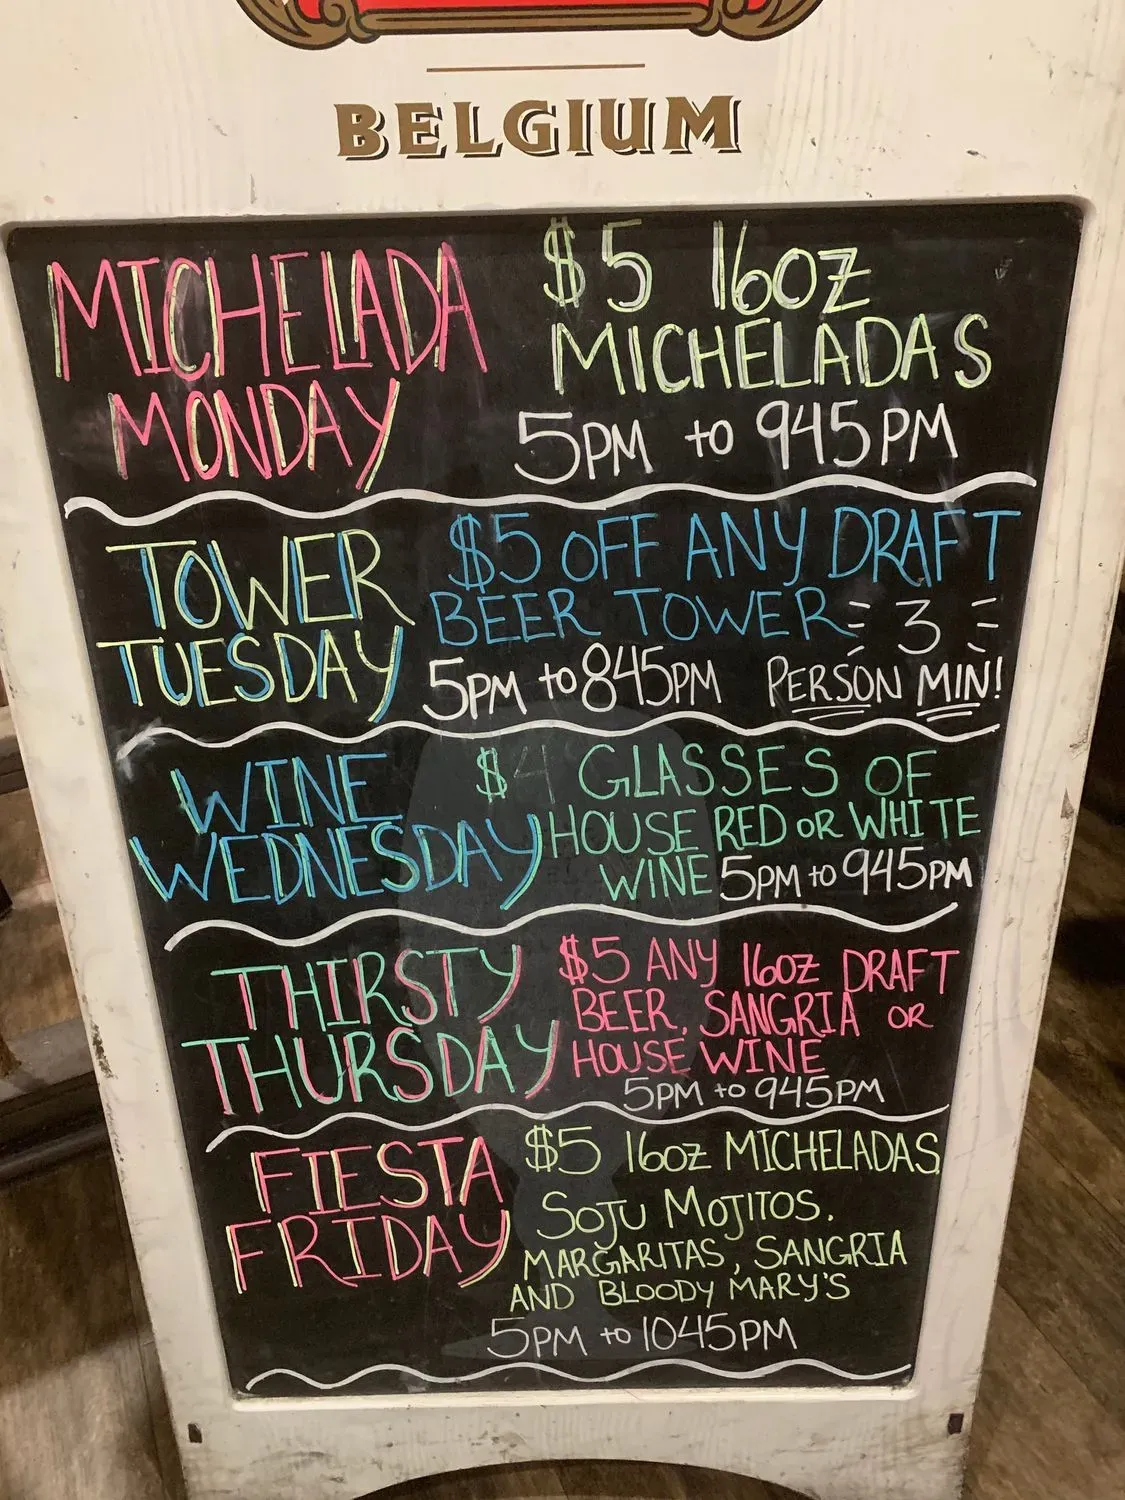 BELGIUM
MICHELADA
MONDAY
$5 16oz
MICHELADAS
5PM to 945PM
TOWER
TUESDAY
$5 OFF ANY DRAFT
BEER TOWER 3
5PM to 845PM PERSON MIN!
WINE
WEDNESDAY
$4 GLASSES OF
HOUSE RED OR WHITE
WINE 5PM to 945PM
THIRSTY
THURSDAY
$5 ANY 16oz DRAFT
BEER, SANGRIA OR
HOUSE WINE
5PM to 945PM
FIESTA
FRIDAY
$5 16oz MICHELADAS
SOJU MOJITOS.
MARGARITAS, SANGRIA
AND BLOODY MARY'S
5PM to 1045PM